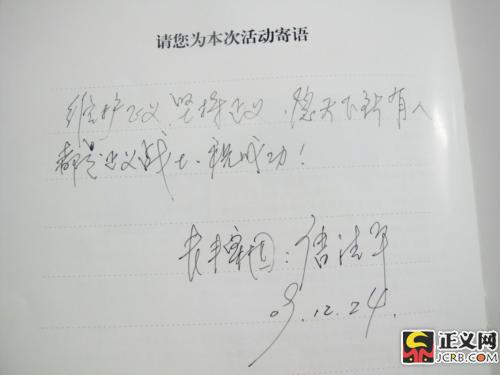 请您为本次活动寄语
维护正义,坚持正义,愿天下所有人
都是正义战士、祝成功!
09.12.24.
正义网
JCRB.COM